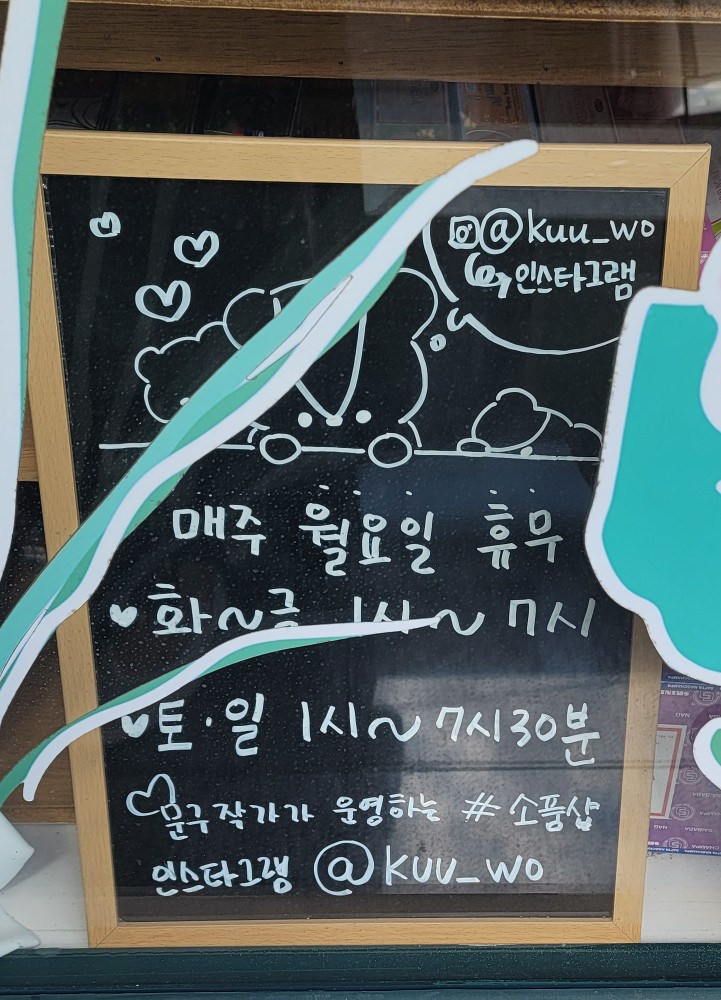 @kuu_wo
인스타그램
매주 월요일 휴무
화~금 1시~7시
토·일 1시~7시30분
문구작가가 운영하는 #소품샵
인스타그램 @kuu_wo